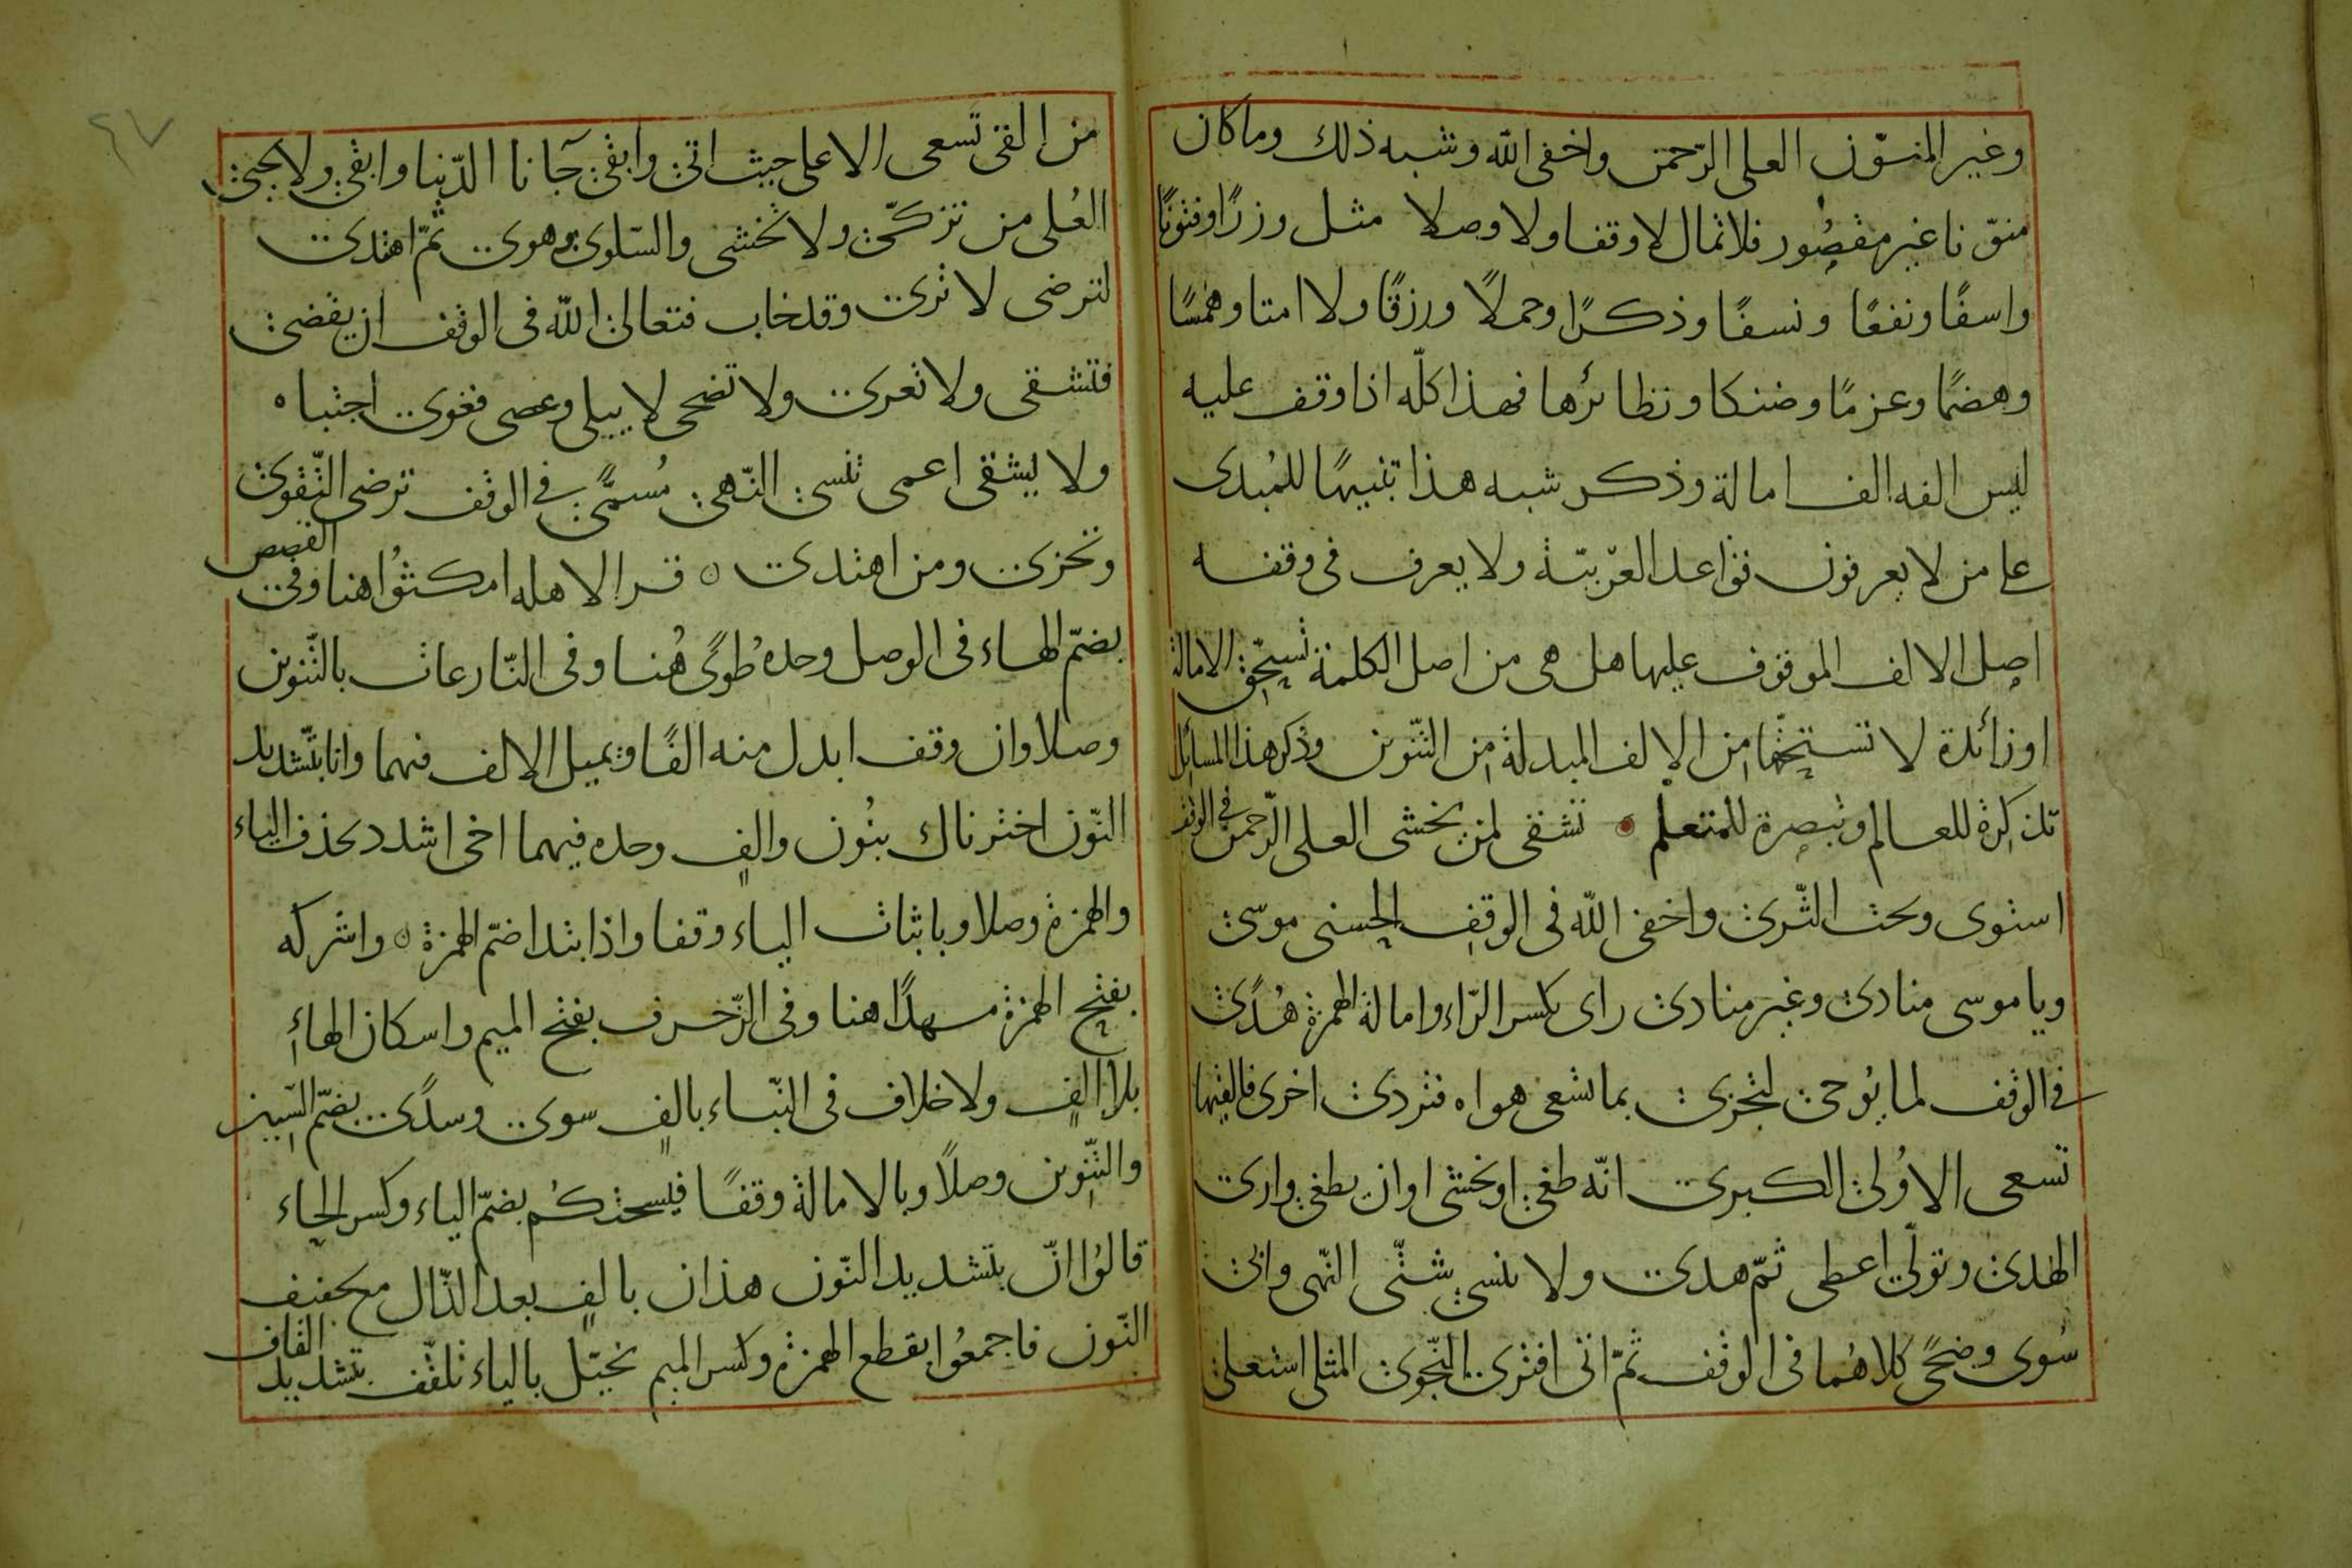 وغير المنوّن العلى الرّحمن واخفى اللّه وشبه ذلك وماكان
منوّنا غير مقصُور فلا تمال لا وقفا ولا وصلا مثل وزرًا وفتونًا
واسفًا ونفعًا ونسفًا وذكرًا وحملًا ورزقًا ولا امتا وهمسًا
وهضمًا وعزمًا وضنكا ونظائرها فهذا كلّه اذا وقف عليه
ليس الفه الف امالة وذكر شبه هذا تنبيهًا للمُبدى
على من لا يعرفون قواعد العربيّة ولا يعرف فى وقفه
اصل الالف الموقوف عليها هل هى من اصل الكلمة تستحّق الامالة
او زائدة لا تستحقّها من الالف المبدلة من التنّوين وذكر هذا المسائل
تذكرة للعالم وتبصرة للمتعلم تشقى لمن يخشى العلى الرّحمن فى الوقف
استوى وتحت الثّرى واخفى اللّه فى الوقف الحسنى موسى
ويا موسى منادى وغير منادى راى بكسر الرّاء وامالة الهمزة هُدًى
فى الوقف لما يُوحى لتجزى بما تسعى هواه فتردى اخرى فالقيها
تسعى الاوُلى الكبرى انّه طغى او يخشى او ان يطغى وارى
الهدى وتولّى اعطى ثمّ هدى ولا ينسى شتّى النّهى وابى
سُوى وضحًى كلاهُما فى الوقف ثمّ اتى افترى النّجوى المثلى استعلى
٤٧
من القى تسعى الاعلى حيث اتى وابقى جآنا الدّنيا وابقى ولا يحيى
العُلى من تزكّى ولا تخشى والسّلوى وهوى ثمّ اهتدى
لترضى لا ترى وقد خاب فتعالى اللّه فى الوقف ان يقضى
فتشقى ولا تعرى ولا تضحى لا يبلى وعصى فغوى اجتباه
ولا يشقى اعمى تنسى النّهى مُسمًّى فى الوقف ترضى التّقوى
ونخزى ومن اهتدى قرا لاهله امكثوُا هنا وفى القصص
بضمّ الهاء فى الوصل وحده طُوًى هُنا وفى النّارعات بالتّنوين
وصلا وان وقف ابدل منه الفًا ويميل الالف فيهما وانا بتّشديد
النّون اخترناك بنُون والفٍ وحده فيهما اخى اشدد بحذف الياء
والهمزة وصلا وباثبات الياء وقفا واذا ابتدا ضمّ الهمزة واشركه
بفتح الهمزة مهدًا هنا وفى الزّخرف بفتح الميم واسكان الهاءِ
بلا الفٍ ولا خلاف فى النّباء بالفٍ سوى وسدًى بضمّ السّين
والتّنوين وصلًا وبالامالة وقفًا فيسحتكُم بضمّ الياء وكسر الحاء
قالوُا انّ بتشديد النّون هذان بالفٍ بعد الذّال مع تخفيف
النّون فاجمعُوا بقطع الهمزة وكسر الميم يخيّل بالياء تلقّف بتشديد القاف